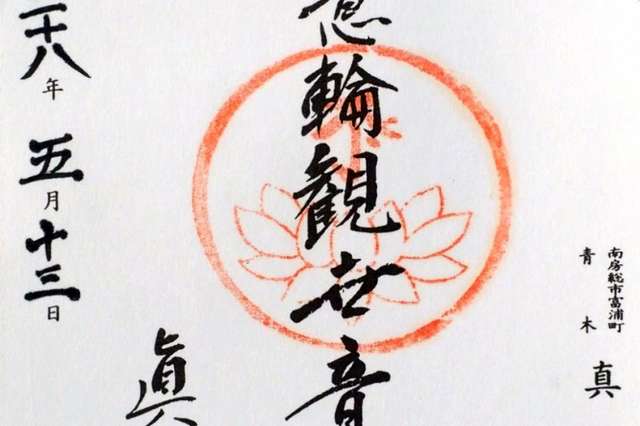 南房総市富浦町
青木
真
意輪観世音
二十八年五月十三日
眞